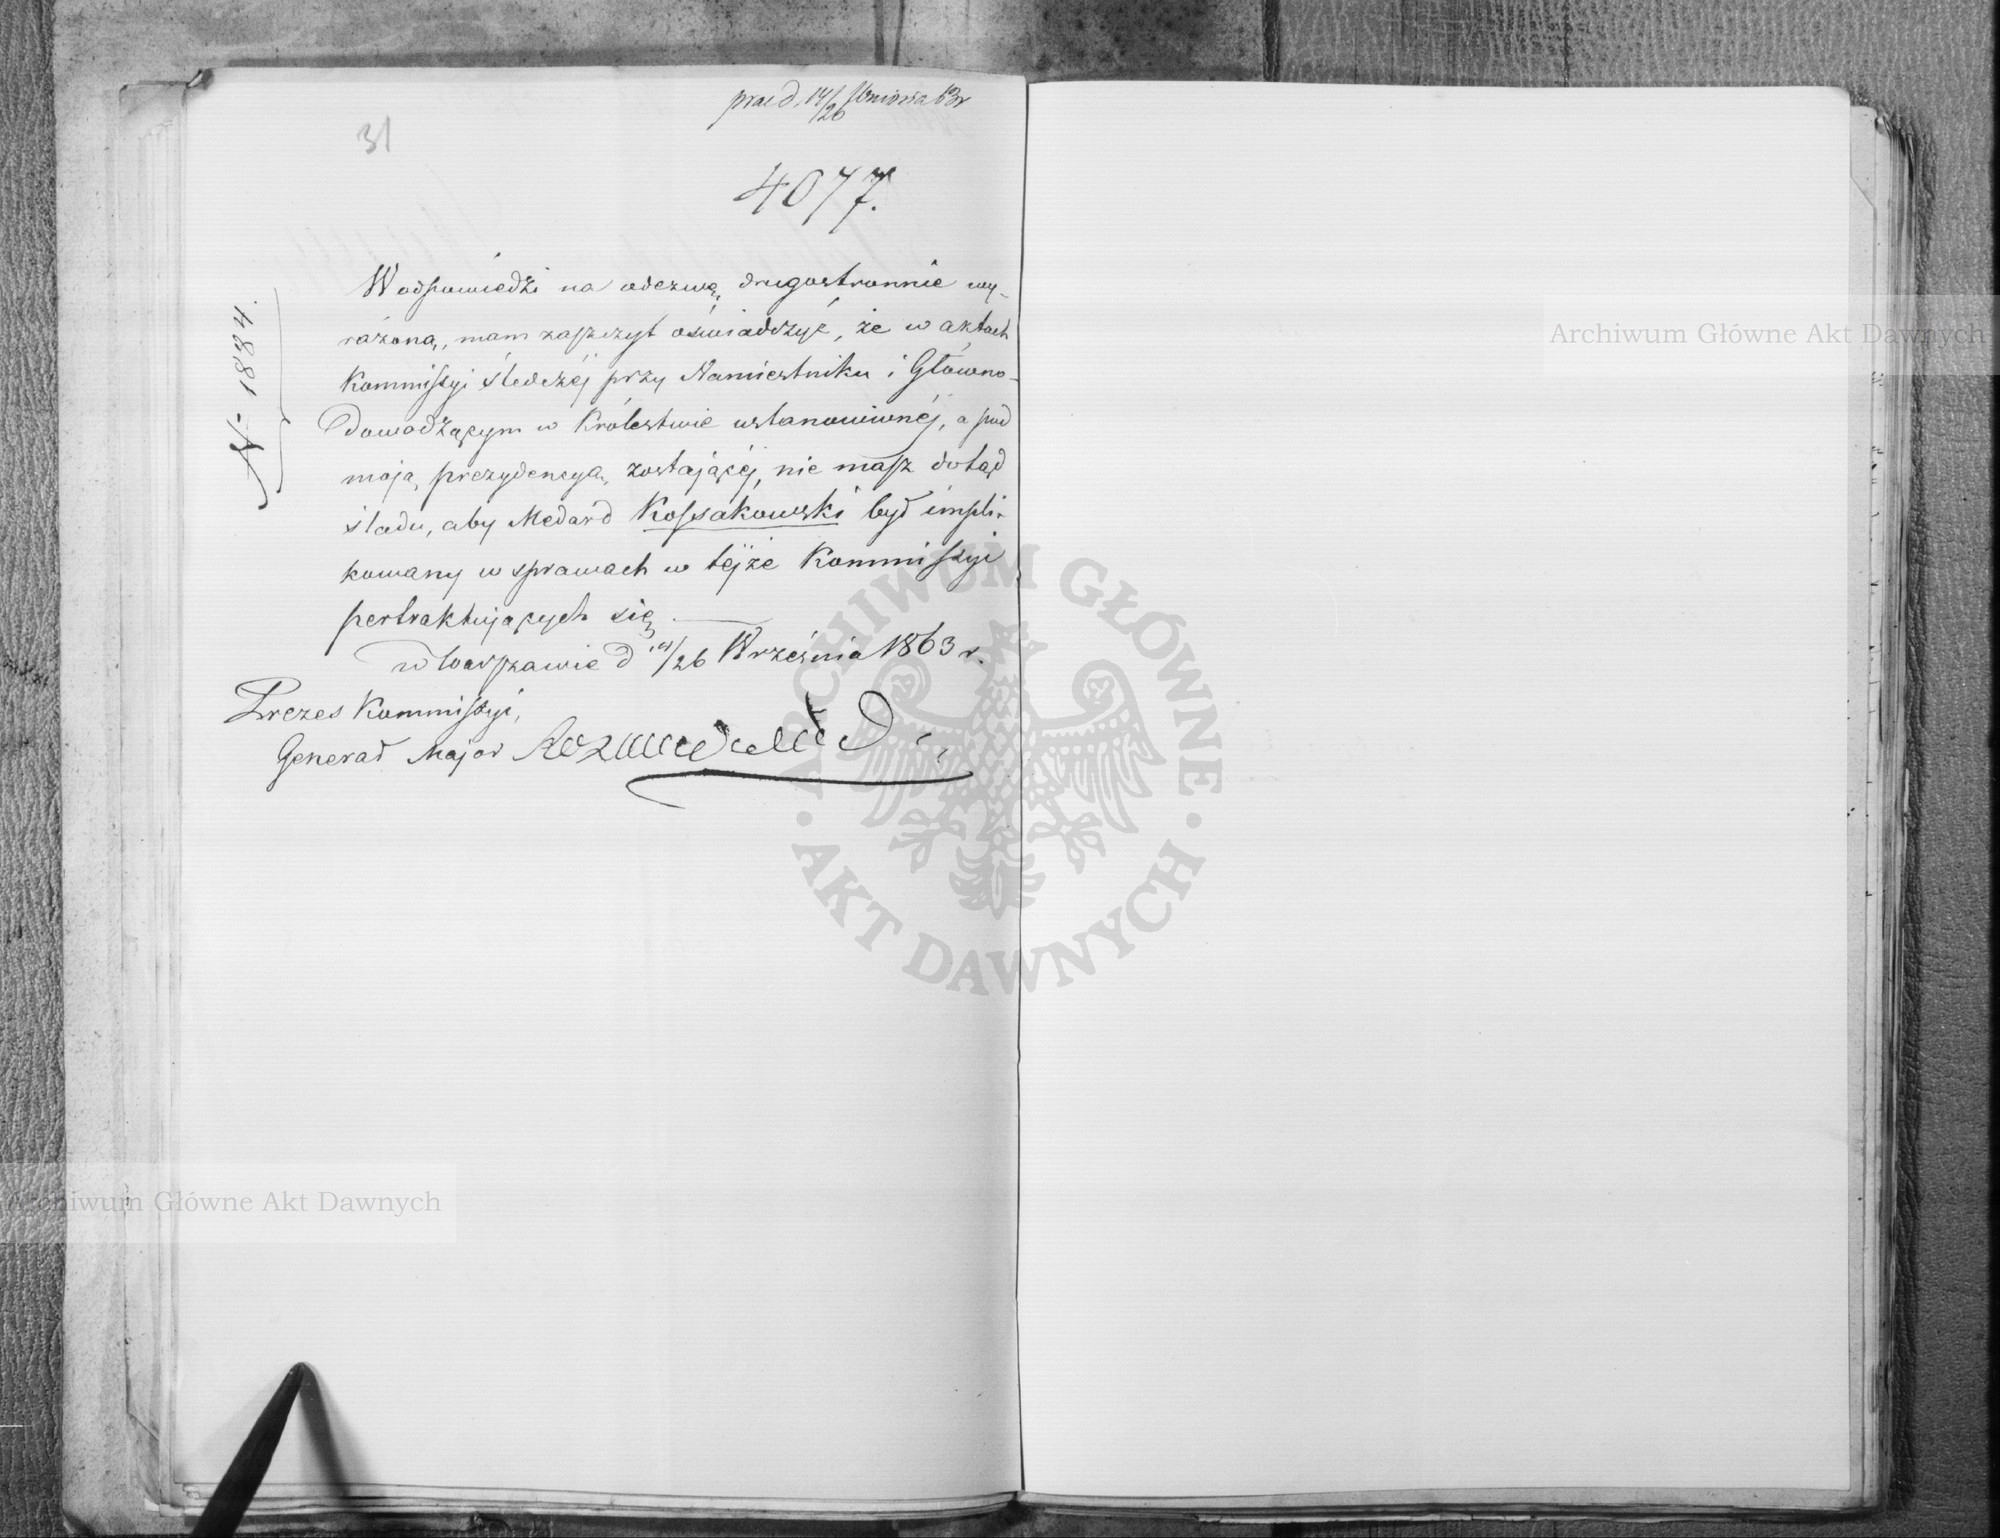 31
praes d. 14/26 Września 63 r
4077.
N. 1884.
W odpowiedzi na odezwę drugostronnie wy-
rażoną, mam zaszczyt oświadczyć, że w aktach
Kommissyi Śledczéj przy Namiestniku i Główno-
Dowodzącym w Królestwie ustanowionéj, a pod
moją prezydencyą zostającéj, nie masz dotąd
śladu, aby Medard Kossakowski był impli-
kowany w sprawach w téjże Kommissyi
pertraktujących się.
w Warszawie d 14/26 Września 1863 r.
Prezes Kommissyi,
Generał Major
Archiwum Główne Akt Dawnych
Archiwum Główne Akt Dawnych
ARCHIWUM GŁÓWNE AKT DAWNYCH